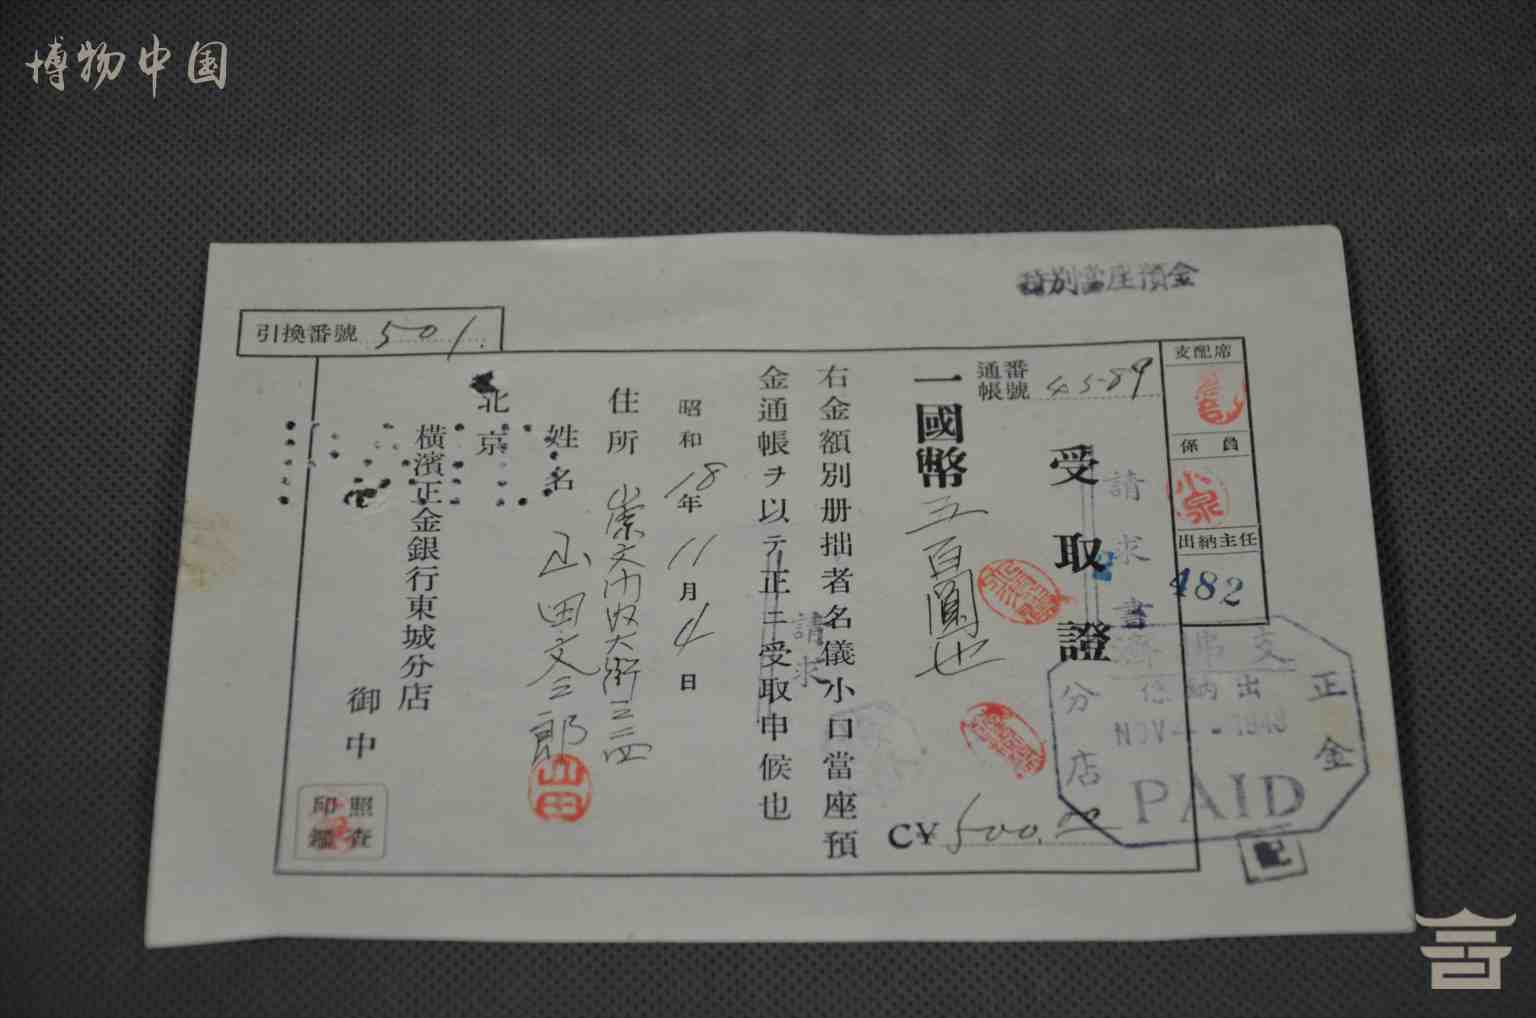 博物中国
特別當座預金
引換番號 501.
支配席
係員
小泉
出納主任
482
通帳番號 4589
受取證
請求書
一國幣五百圓也
C¥500.00
右金額別册拙者名儀小口當座預
金通帳ヲ以テ正ニ受取申候也
請求
昭和18年11月4日
住所 崇文門内大街三三四
姓名 山田文三郎
山田
北京
橫濱正金銀行東城分店
御中
照査
印鑑
正金
分店
出納係
NOV -4 1943
PAID
記